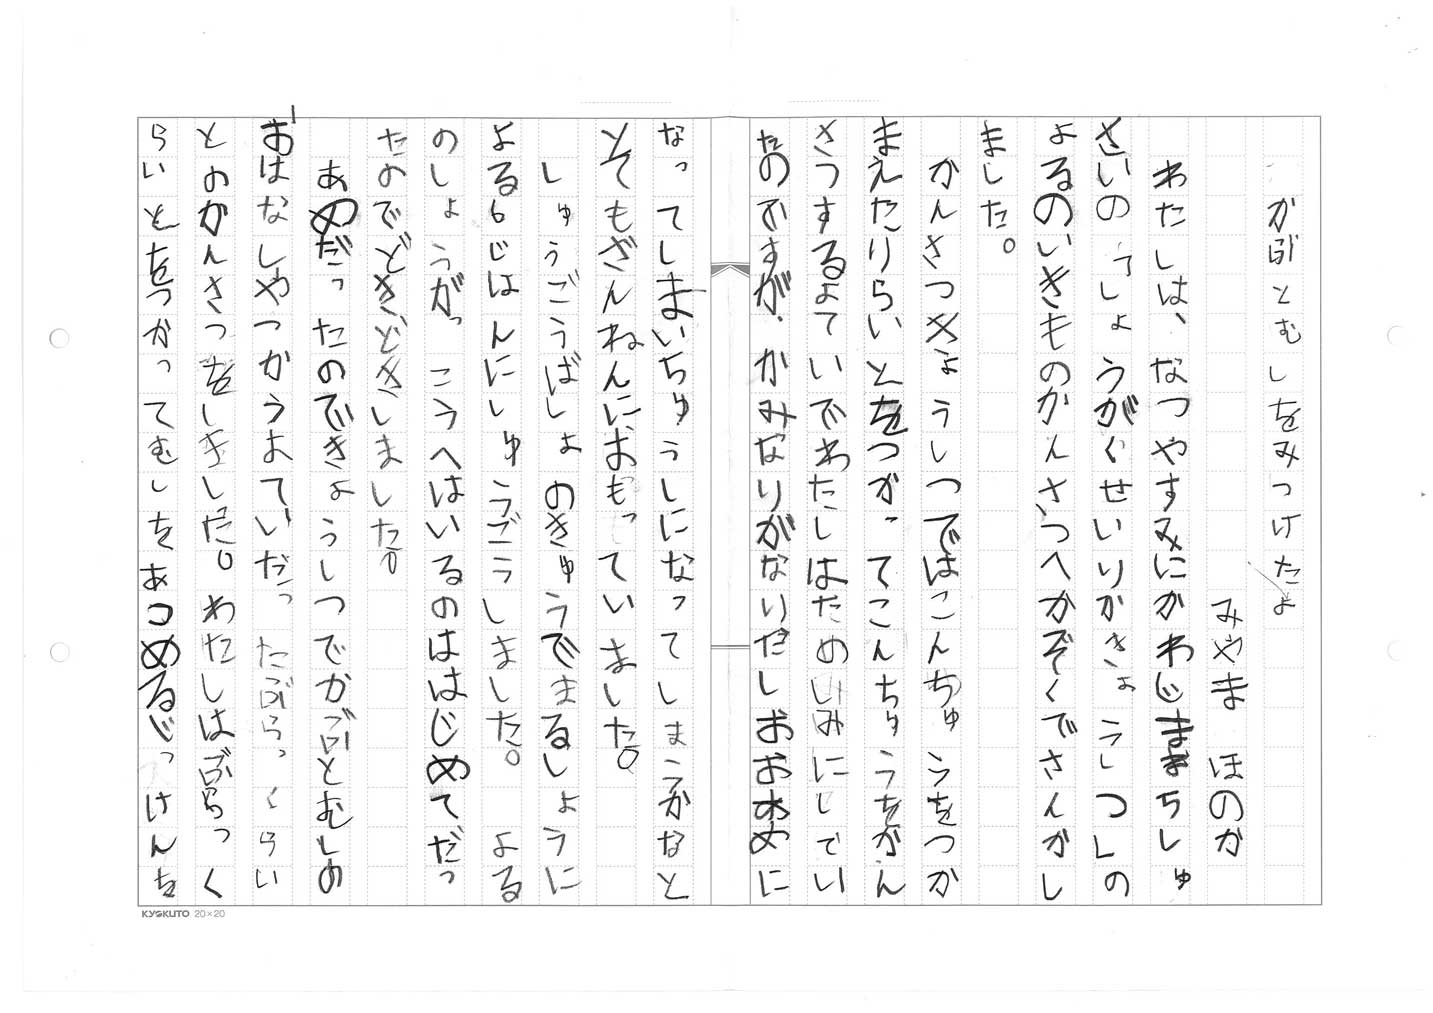 かぶとむしをみつけたよ
みやま ほのか
わたしは、なつやすみにかわじままちしゅ
さいの「しょうがくせいりかきょうしつ」の
よるのいきものかんさつへかぞくでさんかし
ました。
かんさつきょうしつではこんちゅうをつか
まえたりらいとをつかってこんちゅうをかん
さつするよていでわたしはたのしみにしてい
たのですが、かみなりがなりだしおおあめに
なってしまいちゅうしになってしまうかなと
とてもざんねんにおもっていました。
しゅうごうばしょのきゅうでまるしょうに
よる6じはんにしゅうごうしました。よる
のしょうがっこうへはいるのははじめてだっ
たのでどきどきしました。
あめだったのできょうしつでかぶとむしの
おはなしやつかうよていだったぶらっくらい
とのかんさつをしました。わたしはぶらっく
らいとをつかってむしをあつめるじっけんを
KYOKUTO 20×20